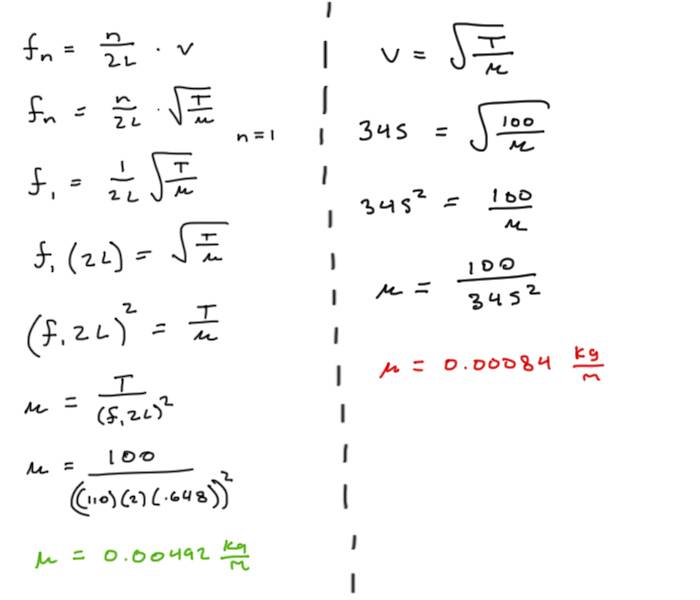 fn = n/2L · v
fn = n/2L · √(T/μ)
n=1
f₁ = 1/2L √(T/μ)
f₁(2L) = √(T/μ)
(f₁2L)² = T/μ
μ = T/(f₁2L)²
μ = 100/((110)(2)(.648))²
μ = 0.00492 kg/m
v = √(T/μ)
345 = √(100/μ)
345² = 100/μ
μ = 100/345²
μ = 0.00084 kg/m